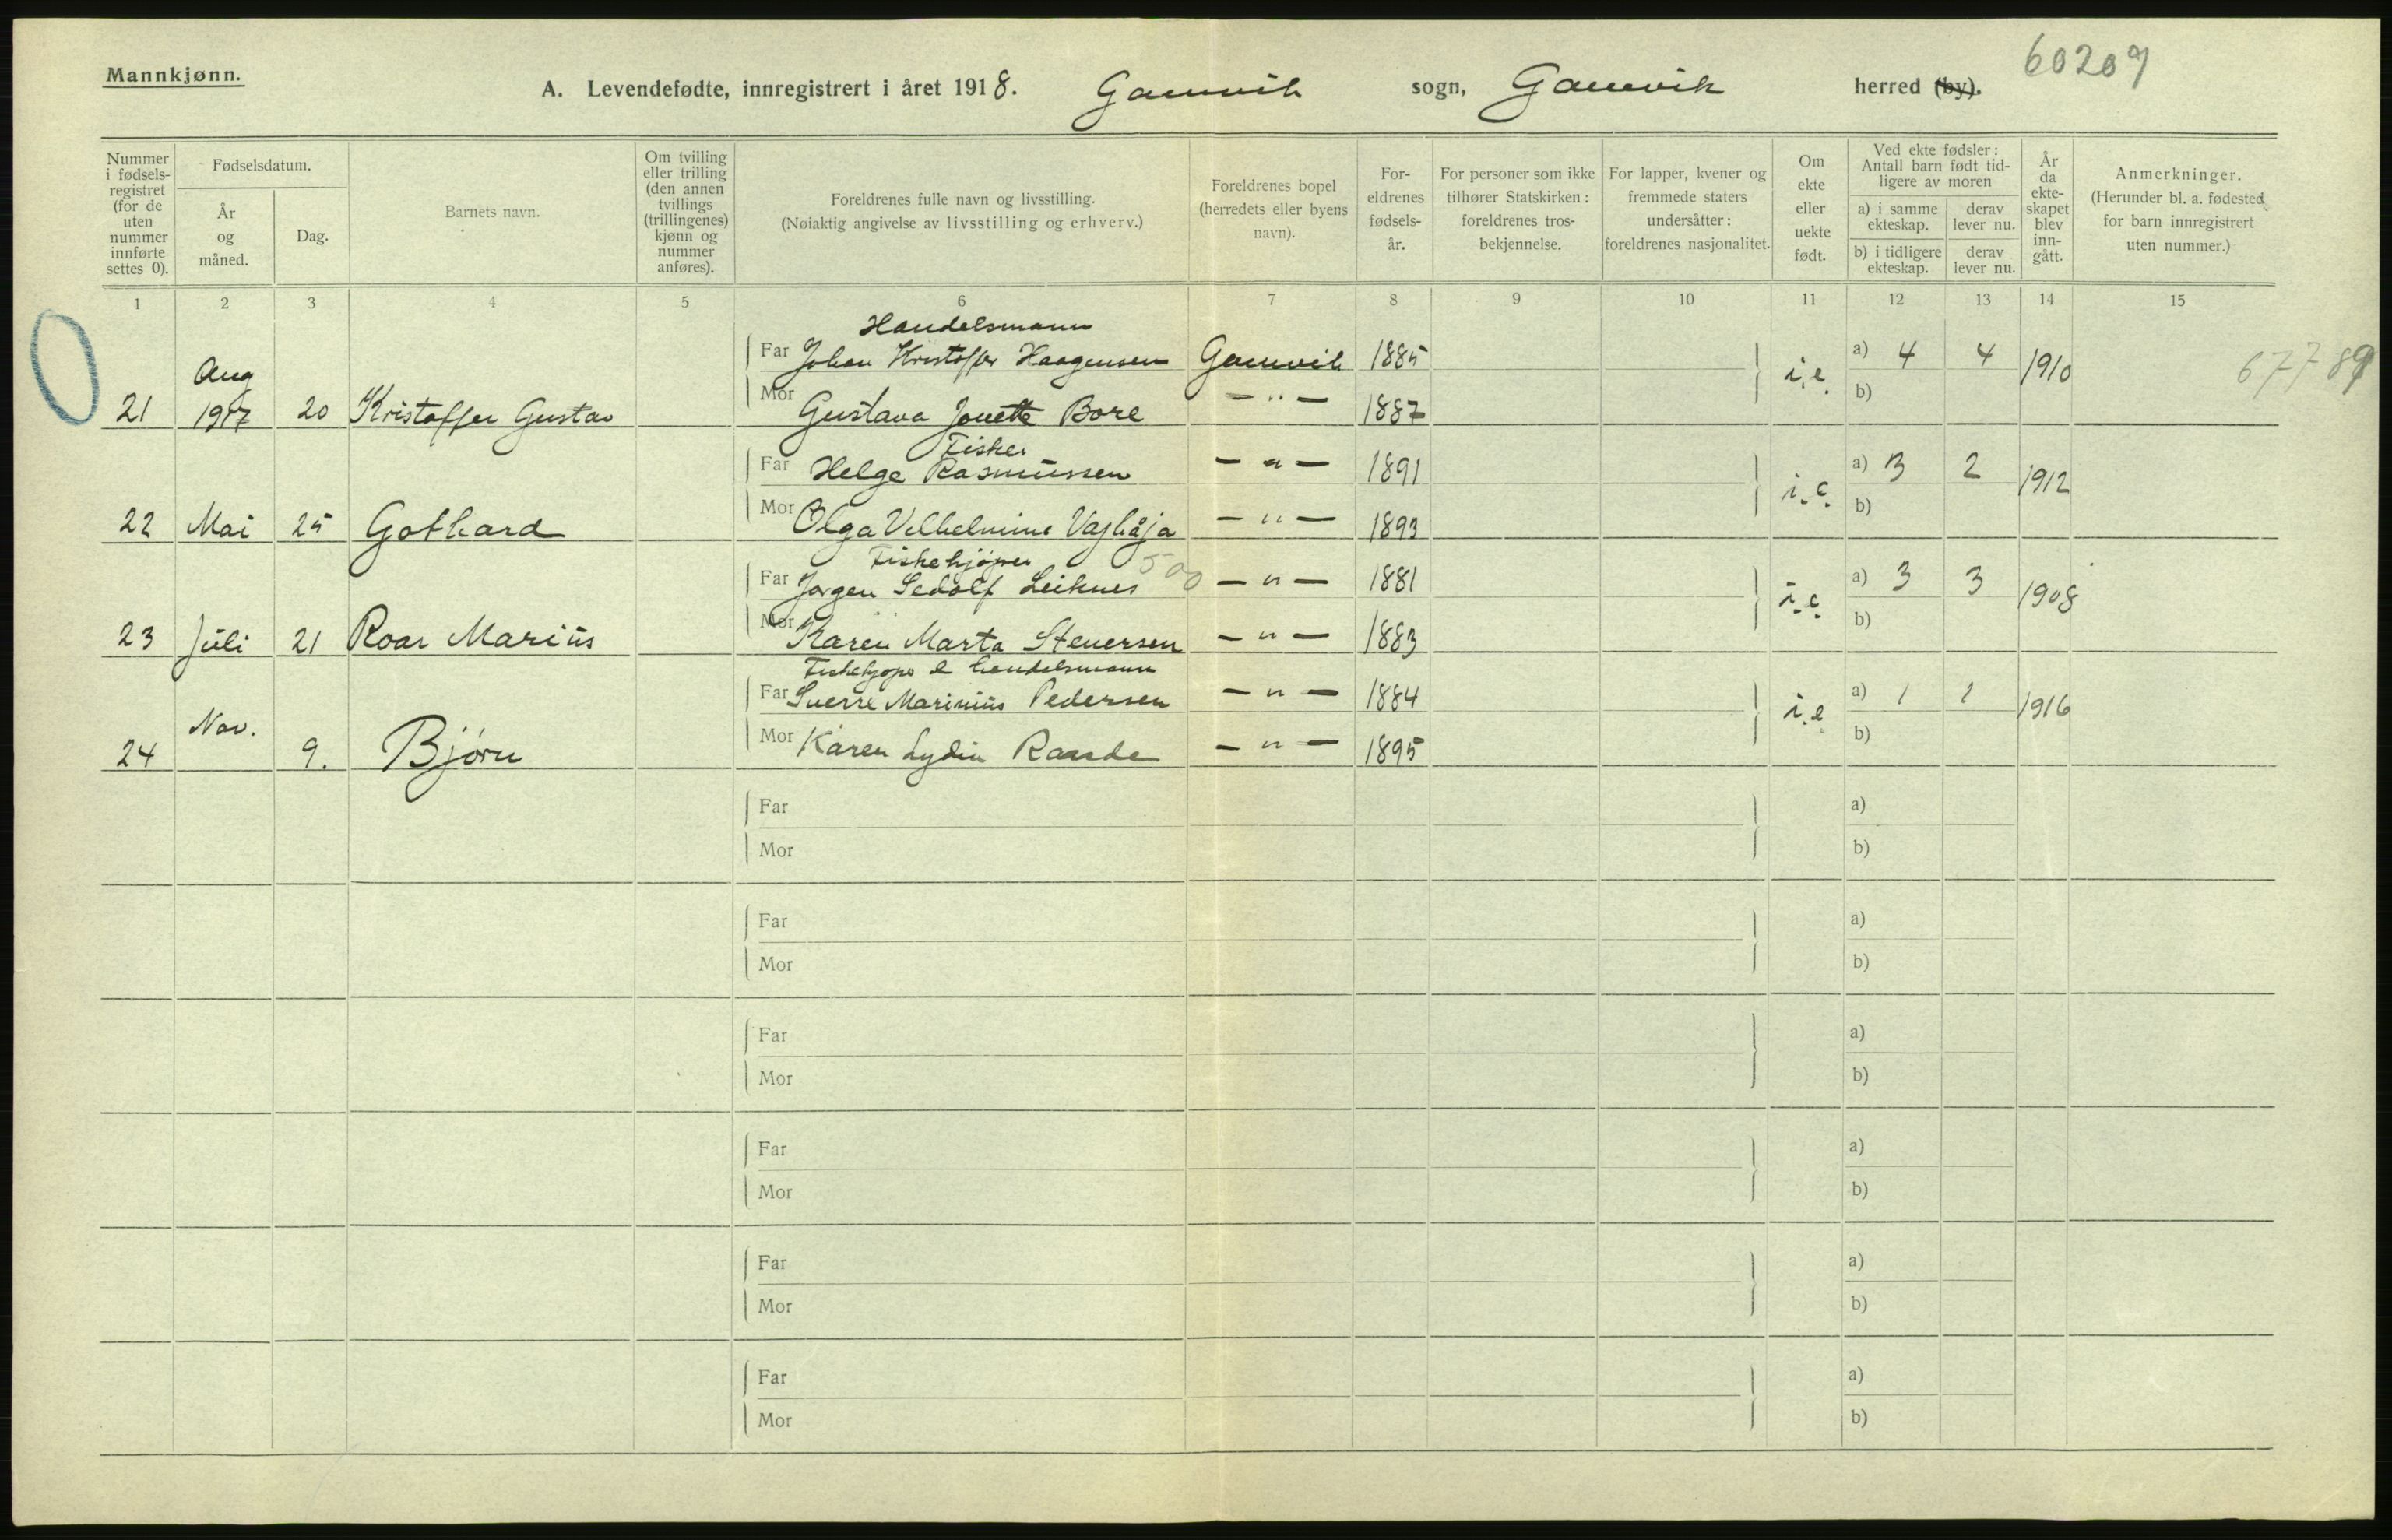 Mannkjønn.
A. Levendefødte, innregistrert i året 1918. Gamvik sogn, Gamvik herred (by).
60209
Nummer i fødsels-registret (for de uten nummer innførte settes 0).
Fødselsdatum.
År og måned.
Dag.
Barnets navn.
Om tvilling eller trilling (den annen tvillings (trillingenes) kjønn og nummer anføres).
Foreldrenes fulle navn og livsstilling.
(Nøiaktig angivelse av livsstilling og erhverv.)
Foreldrenes bopel (herredets eller byens navn).
For-eldrenes fødsels-år.
For personer som ikke tilhører Statskirken: foreldrenes tros-bekjennelse.
For lapper, kvener og fremmede staters undersåtter: foreldrenes nasjonalitet.
Om ekte eller uekte født.
Ved ekte fødsler: Antall barn født tid-ligere av moren
a) i samme ekteskap.
derav lever nu.
b) i tidligere ekteskap.
derav lever nu.
År da ekte-skapet blev inn-gått.
Anmerkninger.
(Herunder bl. a. fødested for barn innregistrert uten nummer.)
1 2 3 4 5 6 7 8 9 10 11 12 13 14 15
Handelsmann
Far Johan Kristoffer Haagensen Gamvik 1885 a) 4 4
21 Aug 1917 20 Kristoffer Gustav i.e. 1910 67789
Mor Gustava Jonette Bore — " — 1887 b)
Fisker
Far Helge Rasmussen — " — 1891 a) 3 2
22 Mai 25 Gothard i.e. 1912
Mor Olga Vilhelmine — " — 1893 b)
Fiskekjøper 500
Far Jørgen Sedolf Leiknes — " — 1881 a) 3 3
23 Juli 21 Roar Marius i.e. 1908
Mor Karen Marta Stenersen — " — 1883 b)
Fiskekjøper & handelsmann
Far Sverre Marinius Pedersen — " — 1884 a) 1 1
24 Nov. 9. Bjørn i.e. 1916
Mor Karen Lydia — " — 1895 b)
Far a)
Mor b)
Far a)
Mor b)
Far a)
Mor b)
Far a)
Mor b)
Far a)
Mor b)
Far a)
Mor b)